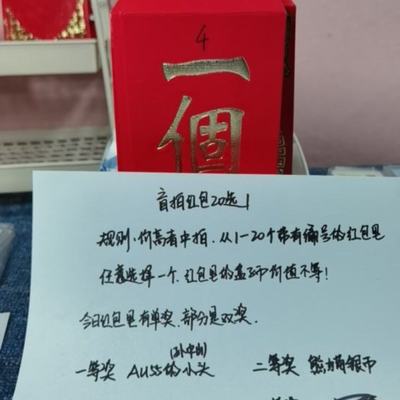 4
一個
盲拍红包20选1
规则:价高者中拍,从1-20个带有编号的红包里
任意选择一个,红包里的盖币价值不等!
今日红包里有单奖,部分是双奖.
一等奖 AU55的小头 二等奖 熊猫银币